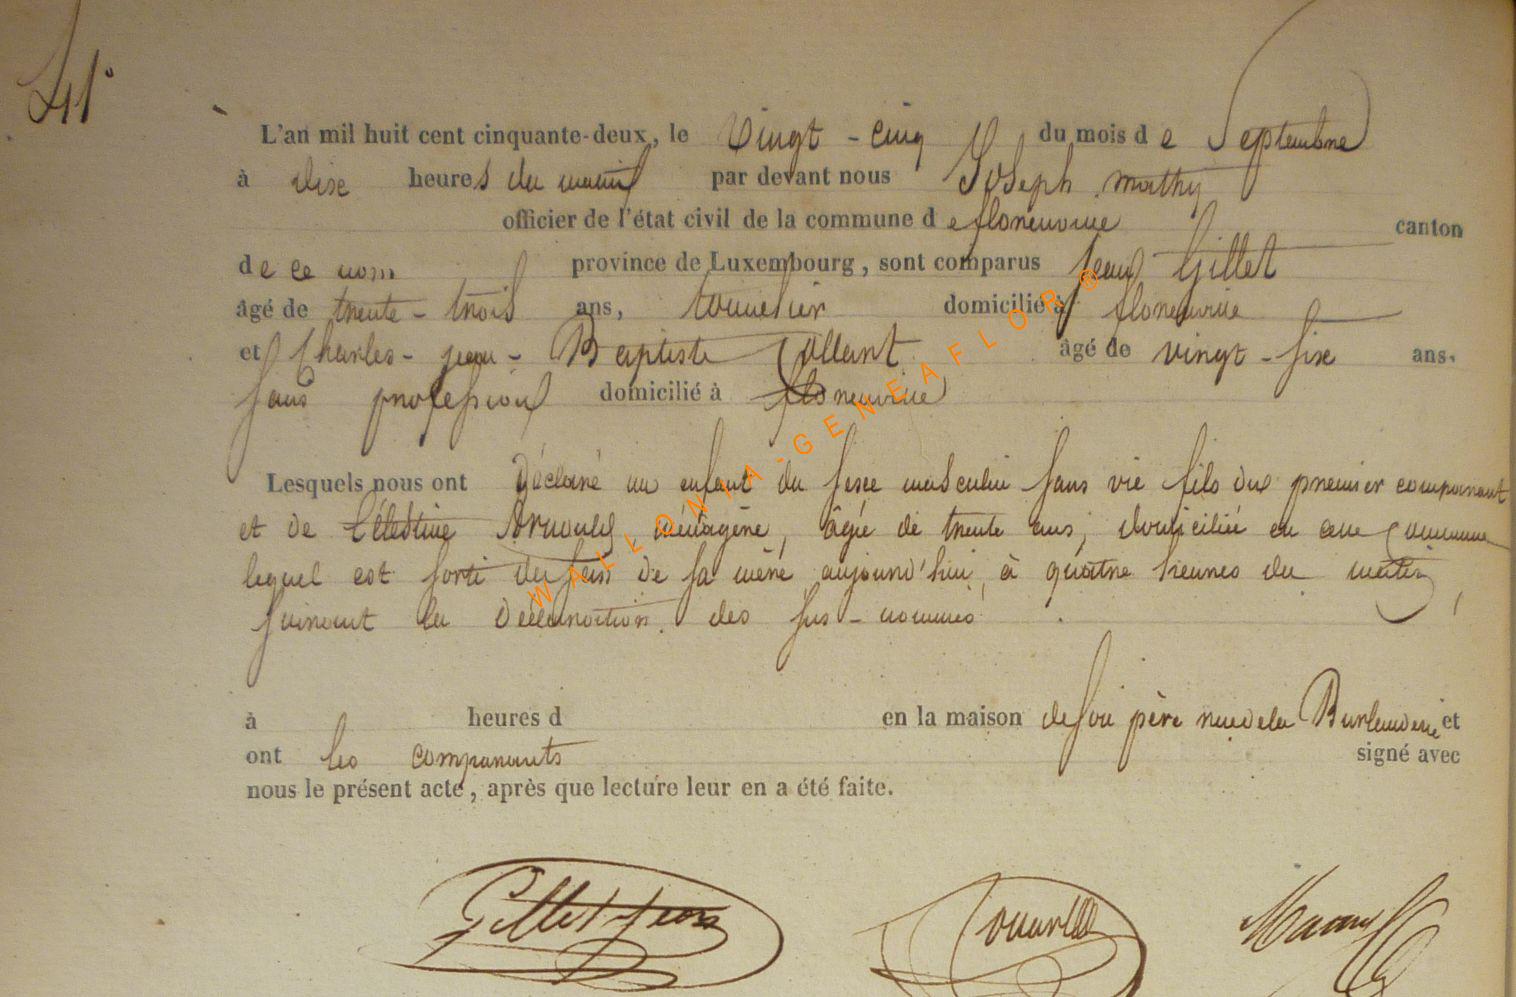 41°
L'an mil huit cent cinquante-deux, le vingt-cinq du mois de Septembre
à dix heures du matin par devant nous Joseph Mathy
officier de l'état civil de la commune de florenville canton
de ce nom province de Luxembourg, sont comparus Jean Gillet
âgé de trente-trois ans, tonnelier domicilié à florenville
et Charles-jean-Baptiste Collant âgé de vingt-six ans.
sans profession domicilié à florenville
Lesquels nous ont Déclaré un enfant du sexe masculin sans vie fils du premier comparant
et de Célestine Arnould, ménagère, âgée de trente ans, domiciliée en cette Commune
lequel est sorti du sein de sa mère aujourd'hui, à quatre heures du matin,
suivant la Déclaration des sus-nommés
à heures d en la maison de son père rue de la et
ont les comparants signé avec
nous le présent acte, après que lecture leur en a été faite.
Gillet jean
WALLONIA-GENEAFLOR®